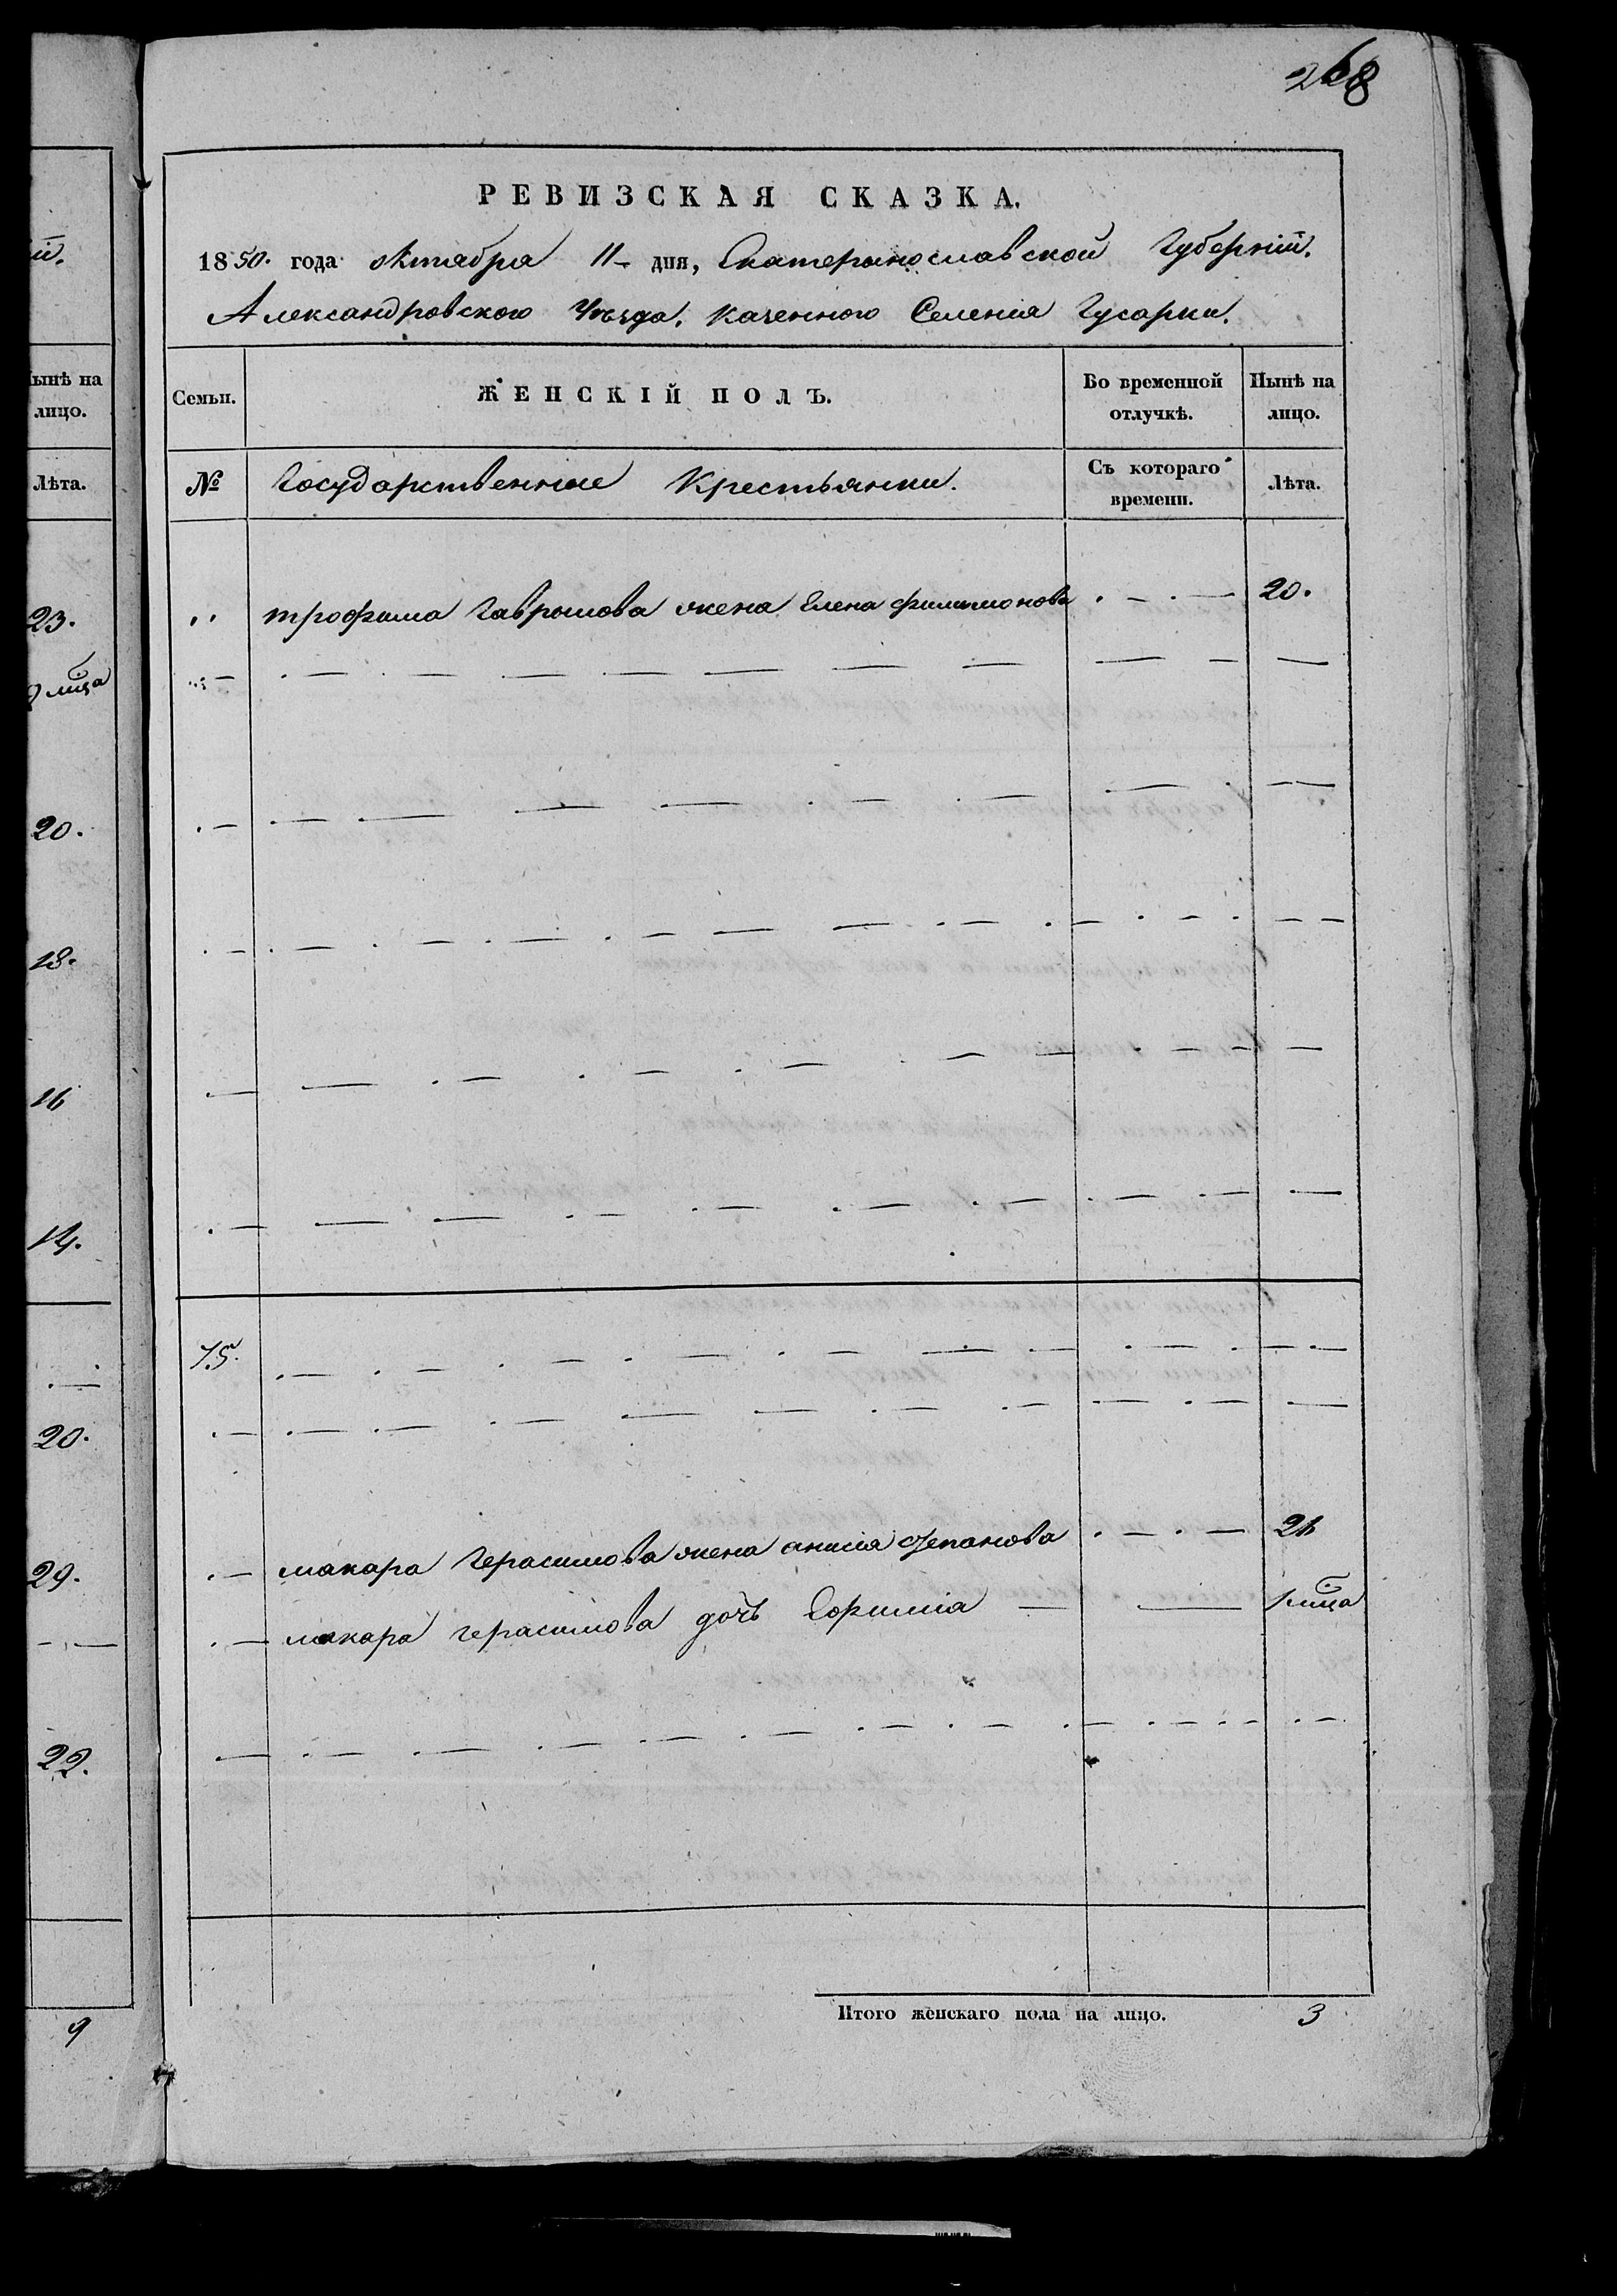 268
РЕВИЗСКАЯ СКАЗКА.
1850. года октабра 11 дня, Екатеринославской Губерніи.
Александровского Уѣзда. Казенного Селенія Гусарки.
Семьи.
ЖЕНСКІЙ ПОЛЪ.
Во временной отлучкѣ.
Нынѣ на лицо.
№
Государственные Крестьянки.
Съ котораго времени.
Лѣта.
трофима Гаврилова жена Елена филимонова . — . — 20.
75.
макара Герасимова жена анисія степанова . — . — 21
макара герасимова дочь — — 1 мѣца
Итого женскаго пола на лицо. 3
ій.
Нынѣ на
лицо.
Лѣта.
23.
9 мца
20.
18.
16
14.
20.
29.
22.
9